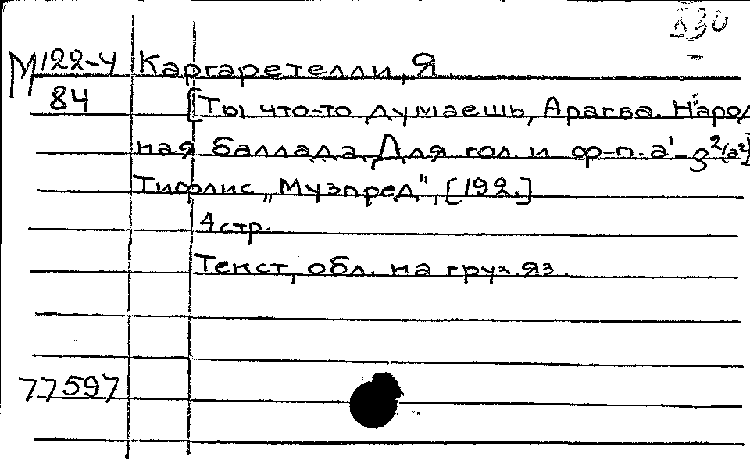 830
М 122-4 Каргаретелли, Я
84 [Ты что-то думаешь, Арагва. Народ
ная баллада. Для гол. и ф-п. a¹-g²(a²)]
Тифлис, „Музпред", [192.]
4 стр.
Текст, обл. на груз. яз.
77597